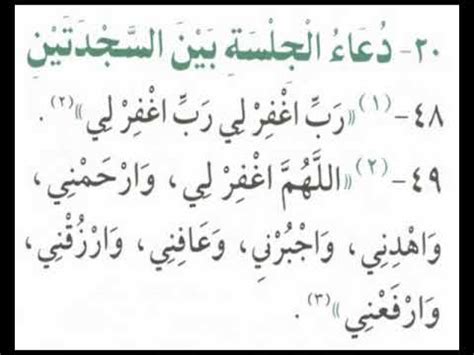 ٢٠- دُعَاءُ الْجِلْسَةِ بَيْنَ السَّجْدَتَيْنِ
٤٨-(١) «رَبِّ اغْفِرْ لِي رَبِّ اغْفِرْ لِي»(٢).
٤٩-(٢) «اللَّهُمَّ اغْفِرْ لِي، وَارْحَمْنِي،
وَاهْدِنِي، وَاجْبُرْنِي، وَعَافِنِي، وَارْزُقْنِي،
وَارْفَعْنِي»(٣).